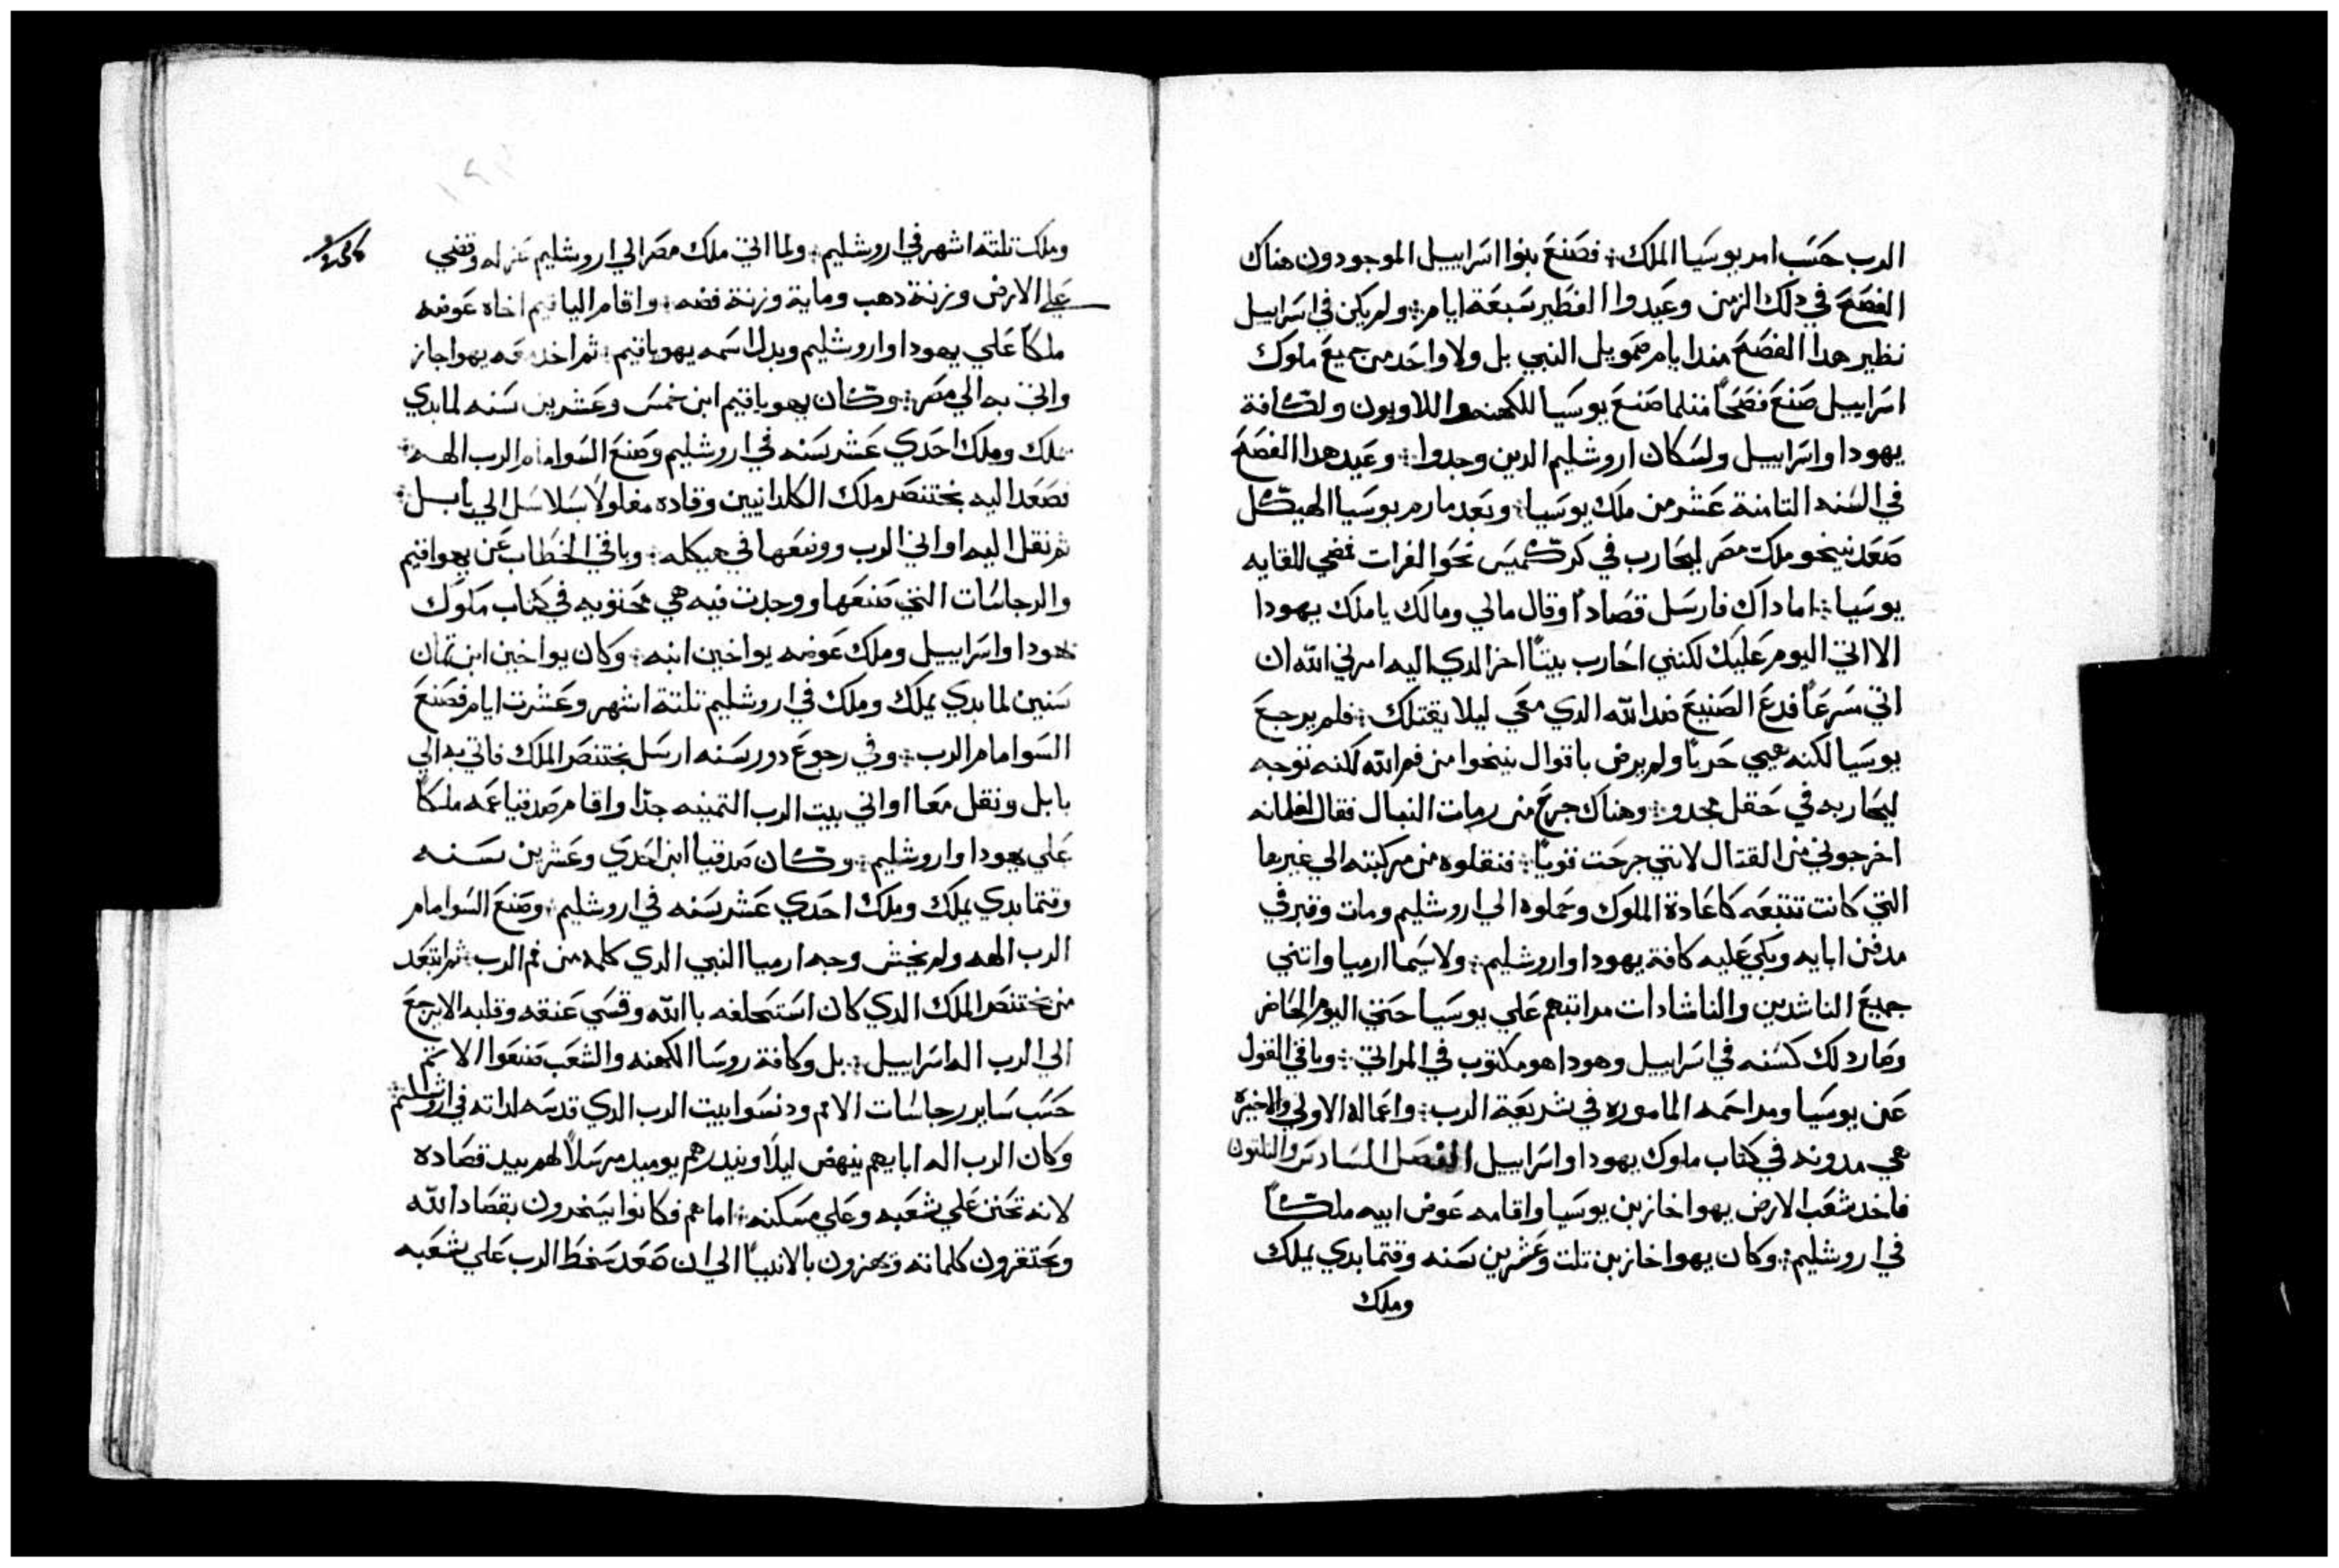 الرب حسب امر يوسيا الملك ݭ فصنع بنوا اسراييل الموجودون هناك
الفصح في دلك الزمن وعيدوا الفطير سبعة ايام ݭ ولم يكن في اسراييل
نظير هدا الفصح مندا يام صمويل النبي بل ولا واحد من جميع ملوك
اسراييل صنع فصحاً مثلما صنع يوسيا للكهنه واللاويون ولكافة
يهودا واسراييل ولسكان اروشليم الدين وجدوا ݭ وعيد هدا الفصح
في السنه التامنة عشر من ملك يوسيا ݭ وبعد مارم يوسيا الهيكل
صعد نيخو ملك مصر ليحارب في كركميس نحو الفرات فمضي للقايه
يوسيا ݭ اما داك فارسل قصاداً وقال مالي ومالك يا ملك يهودا
الا اتي اليوم عليك لكنني احارب بيتاً اخر الدي اليه امرني الله ان
اتي سرعاً فدع الصنيع ضد الله الدي معي ليلا يقتلك ݭ فلم يرجع
يوسيا لكنه هيي حرباً ولم يرض باقوال نيخوا من فم الله لكنه توجه
ليحاربه في حقل مجدو ݭ وهناك جرح من رمات النبال فقال لغلمانه
اخرجوني من القتال لانني جرحت قوياً ݭ فنقلوه من مركبته الي غيرها
التي كانت تتبعه كاعادة الملوك وحملوه الي اروشليم ومات وقبر في
مدفن ابايه وبكي عليه كافة يهودا واروشليم ݭ ولاسيما ارميا واتني
جميع الناشدين والناشادات مراتيهم علي يوسيا حتي اليوم الحاضر
وصار دلك كسنه في اسراييل وهودا هو مكتوب في المراتي ݭ وباقي القول
عن يوسيا ومراحمه المأموره في شريعة الرب ݭ واعماله الاولي والاخيرة
هي مدونه في كتاب ملوك يهودا واسراييل الفصل السادس والتلتون
فاخد شعب الارض يهواخاز بن يوسيا واقامه عوض ابيه ملكاً
في اروشليم ݭ وكان يهواخاز بن تلت وعشرين سنه وقتما بدي يملك
وملك
وملك تلتة اشهر في اروشليم ݭ ولما اتي ملك مصر الي اروشليم عزله وقضي
علي الارض وزنة دهب وماية وزنة فضه ݭ واقام الياقيم اخاه عوضه
ملكاً علي يهودا واروشليم وبدل اسمه يهوياقيم ݭ ثم اخد معه يهواجاز
واتي به الي مصر ݭ وكان يهوياقيم ابن خمس وعشرين سنه لما بدي
يملك وملك احدي عشر سنه في اروشليم وصنع السوا امام الرب الهه ݭ
فصعد اليه بختنصر ملك الكلدانيين وقاده مغلولاً بسلاسل الي بابل ݭ
ثم نقل اليها اواني الرب ووضعها في هيكله ݭ وباقي الخطاب عن يهواقيم
والرجاسات التي صنعها ووجدت فيه هي محتويه في كتاب ملوك
يهودا واسراييل وملك عوضه يواخين ابنه ݭ وكان يواخين ابن تمان
سنين لما بدي يملك وملك في اروشليم تلتة اشهر وعشرت ايام فصنع
السوا امام الرب ݭ وفي رجوع دور سنه ارسل بختنصر الملك فاتي به الي
بابل ونقل معا اواني بيت الرب التمينه جداً واقام صدقيا عمه ملكاً
علي يهودا واروشليم ݭ وكان صدقيا ابن احدي وعشرين سنه
وقتما بدي يملك وملك احدي عشر سنه في اروشليم ݭ وصنع السوا امام
الرب الهه ولم يخش وجه ارميا النبي الدي كلمه من فم الرب ݭ ثم ابتعد
من بختنصر الملك الدي كان استحلفه باالله وقسي عنقه وقلبه الا يرجع
الي الرب اله اسراييل ݭ بل وكافة روسا الكهنه والشعب صنعوا الاتم
حسب ساير رجاسات الامم ودنسوا بيت الرب الدي قدسه لداته في اروشليم
وكان الرب اله ابايهم ينهض ليلاً ويندرهم يوميد مرسلاً لهم بيد قصاده
لانه تحنن علي شعبه وعلي مسكنه ݭ اما هم فكانوا يسخرون بقصاد الله
ويحتقرون كلماته ويهزون بالانبيا الي ان صعد سخط الرب علي شعبه